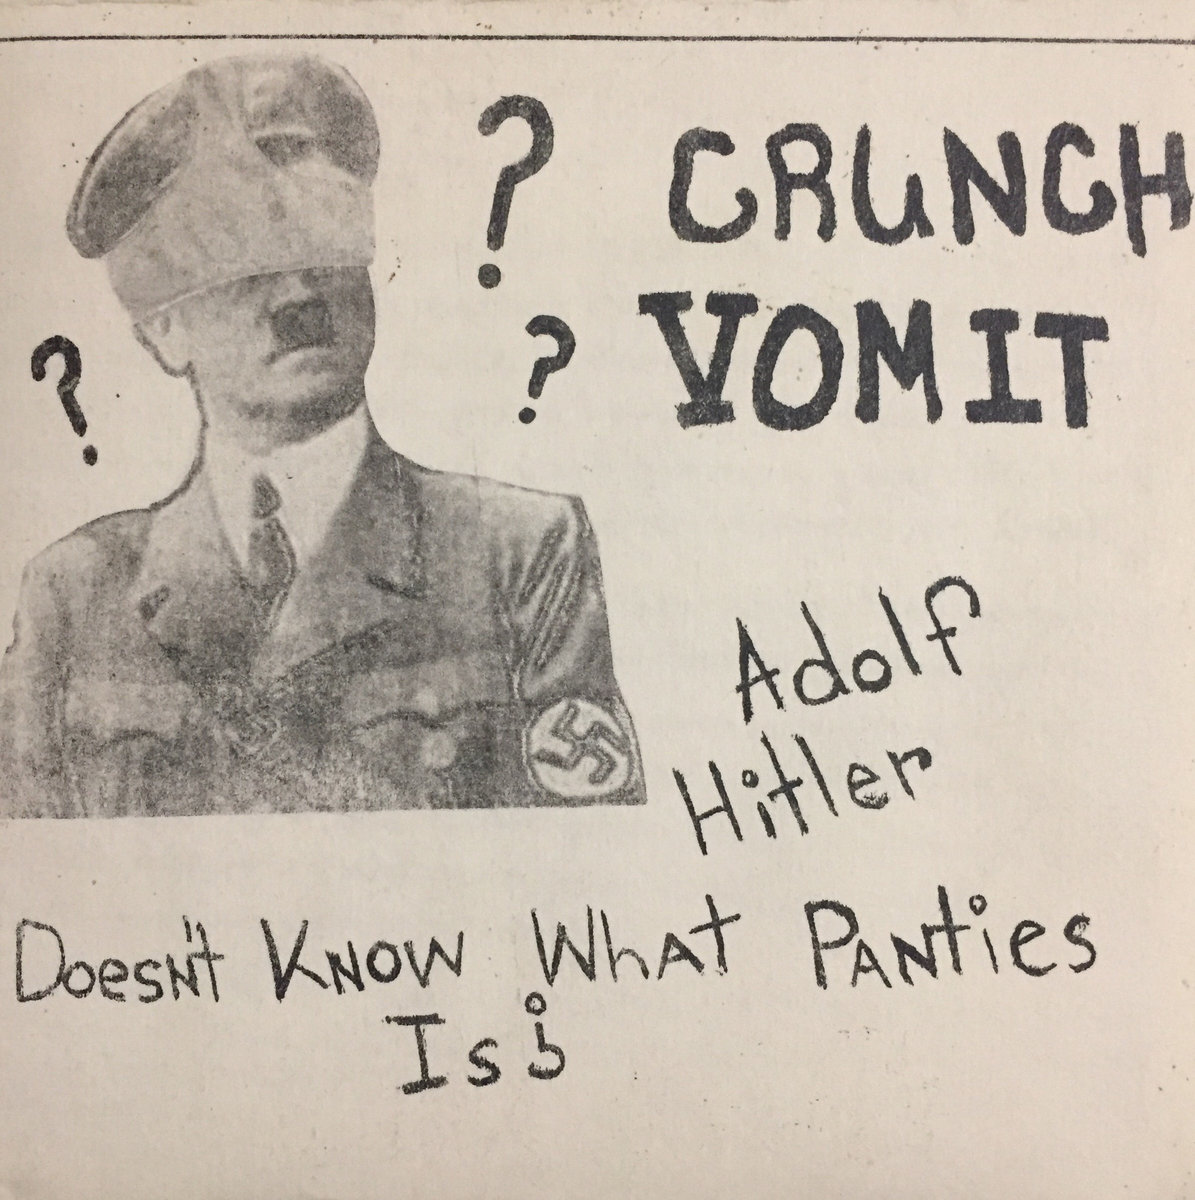 ?
CRUNCH
?
?
VOMIT
Adolf
Hitler
Doesn't Know What Panties
Is¿